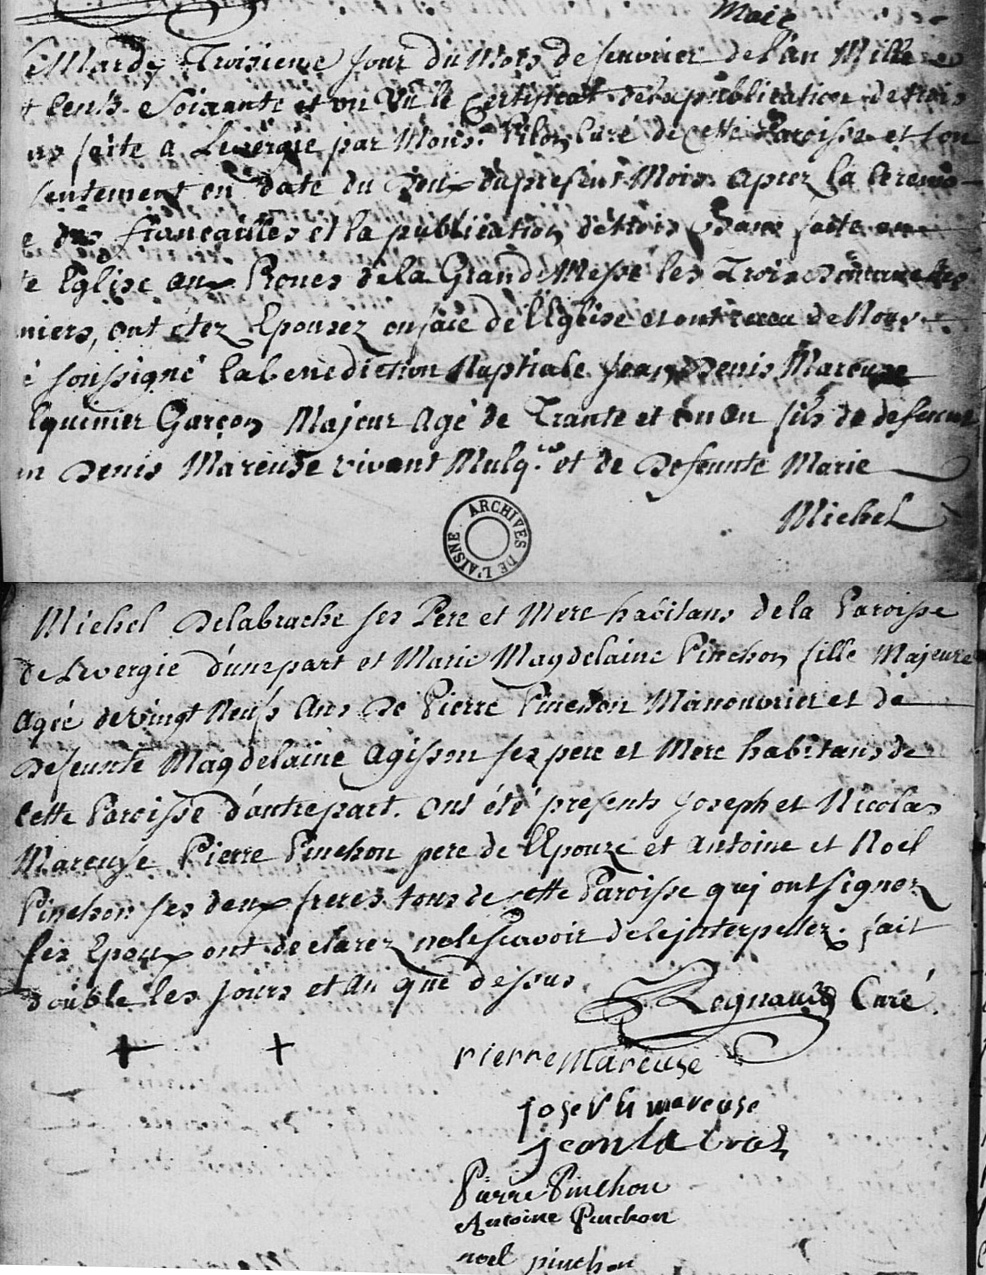 Maie
Mardy Troisieme Jour du Mois de fevrier de l'an Mille
Cents Soixante et un Vû le Certificat de la publication de trois
faite a Levergie par Mons.r Pilon Curé de cette Paroisse et son
sentement en date du Doux du present Mois apres la ceremo-
des fiancailles et la publication de trois Bans faite en
Eglise aux Prones de la Grande Messe les Trois Dimanches
niers, ont étez Epousez en face de l'Eglise et ont recu de Nous
soussigné la benediction Nuptiale Jean Denis Mareuse
Garçon Majeur Agé de Trante et un an fils de defunt
Denis Mareuse vivant Mulq.er et de Defeunte Marie
Michel
ARCHIVES DE L'AISNE
Michel Delabrache ses Pere et Mere habitans de la Paroisse
de Levergie d'une part et Marie Magdelaine Pinchon fille Majeure
Agée de vingt Neufs Ans de Pierre Pinchon Manouvrier et de
Defeunte Magdelaine Agisson ses pere et Mere habitans de
Cette Paroisse d'autre part. Ont été presents Joseph et Nicolas
Mareuse Pierre Pinchon pere de l'Epouze et Antoine et Noel
Pinchon ses deux freres tous de cette Paroisse qui ont signez
les Epoux ont declarez ne le scavoir de le jnterpeller. fait
double les Jours et An que dessus
Regnauld Curé
+ +
Pierre Mareuse
Joseph mareuse
jean la
Pierre Pinchon
Antoine Pinchon
noel pinchon